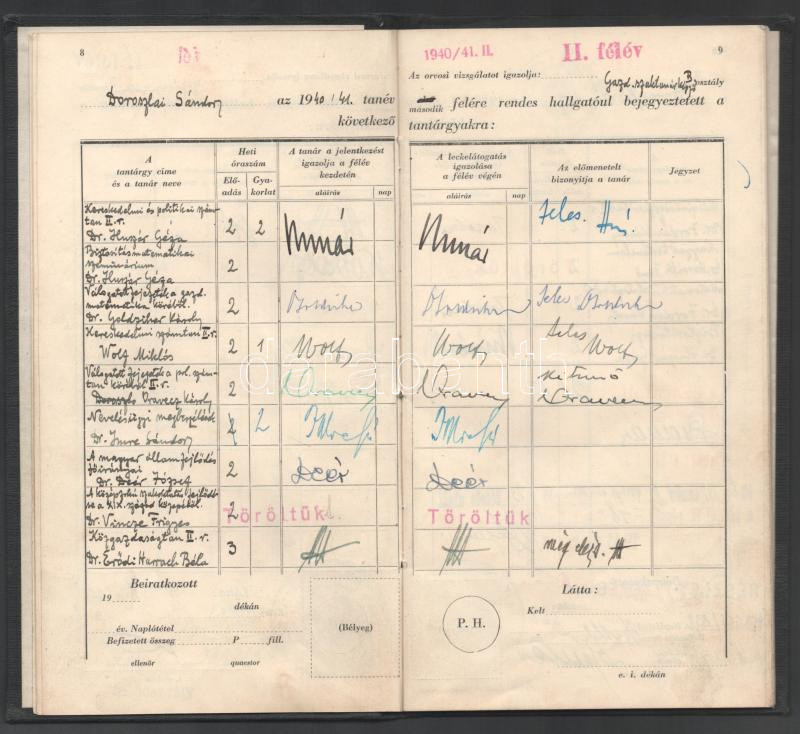 8
1940/41. II.
II. félév
9
Az orvosi vizsgálatot igazolja:
Gazd. szaktanárképző B osztály
Doroszlai Sándor az 1940/41. tanév
második felére rendes hallgatóul bejegyeztetett a
következő
tantárgyakra:
A
tantárgy címe
és a tanár neve
Heti
óraszám
Elő-
adás
Gya-
korlat
A tanár a jelentkezést
igazolja a félév
kezdetén
aláírás
nap
A leckelátogatás
igazolása
a félév végén
aláírás
nap
Az előmenetelt
bizonyítja a tanár
Jegyzet
Kereskedelmi és politikai szám-
tan II. r.
Dr. Huszár Géza
2 2
jeles.
Biztosításmatematikai
szeminárium
Dr. Huszár Géza
2
Válogatott fejezetek a gazd.
matematika köréből.
Dr. Goldziher Károly
2
jeles
Kereskedelmi számtan II. r.
Wolf Miklós
2 1 Wolf Wolf jeles Wolf
Válogatott fejezetek a pol. szám-
tan köréből II. r.
Oravecz Károly
2 Oravecz Oravecz kitünő Oravecz
Nevelésügyi megbeszélések
Dr. Imre Sándor
2
A magyar államfejlődés
főirányai
Dr. Deér József
2 Deér Deér
A középfokú szakoktatás fejlődé-
se a XIX. század közepétől.
Dr. Vincze Frigyes
2
Töröltük
Töröltük
Közgazdaságtan II. r.
Dr. Erődi Harrach Béla
3
Beiratkozott
19
dékán
év. Naplótétel
Befizetett összeg P fill.
ellenőr quaestor
(Bélyeg)
P. H.
Látta:
Kelt
e. i. dékán
darabanth